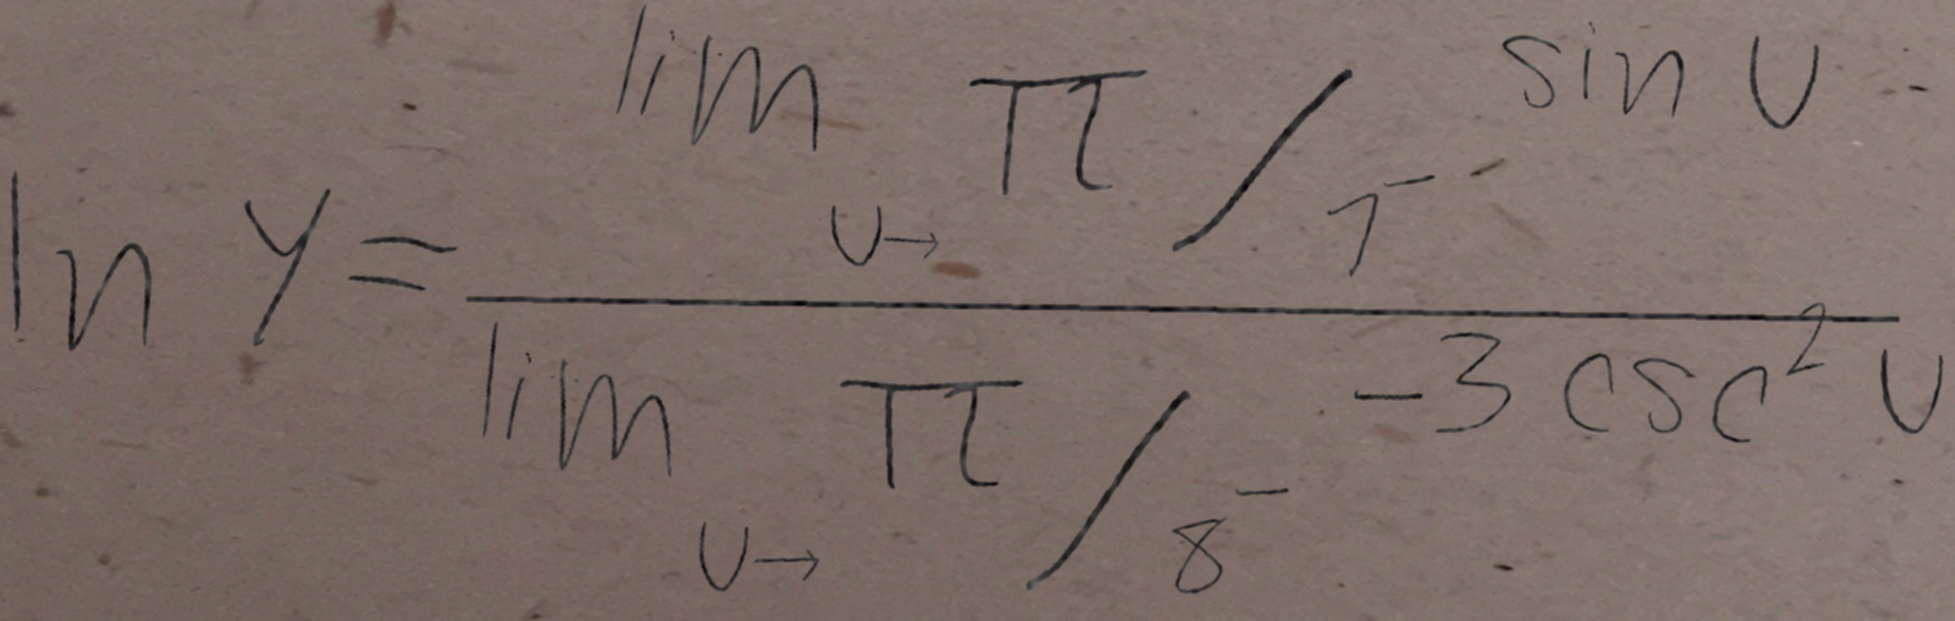 ln y = \frac{\lim_{u \to \pi/7^-} \sin u}{\lim_{u \to \pi/8^-} -3 \csc^2 u}